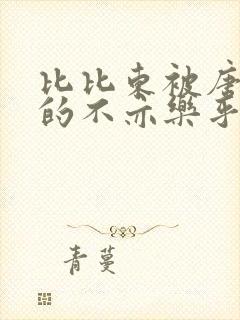 比比东被唐
的不亦乐乎
青蔓